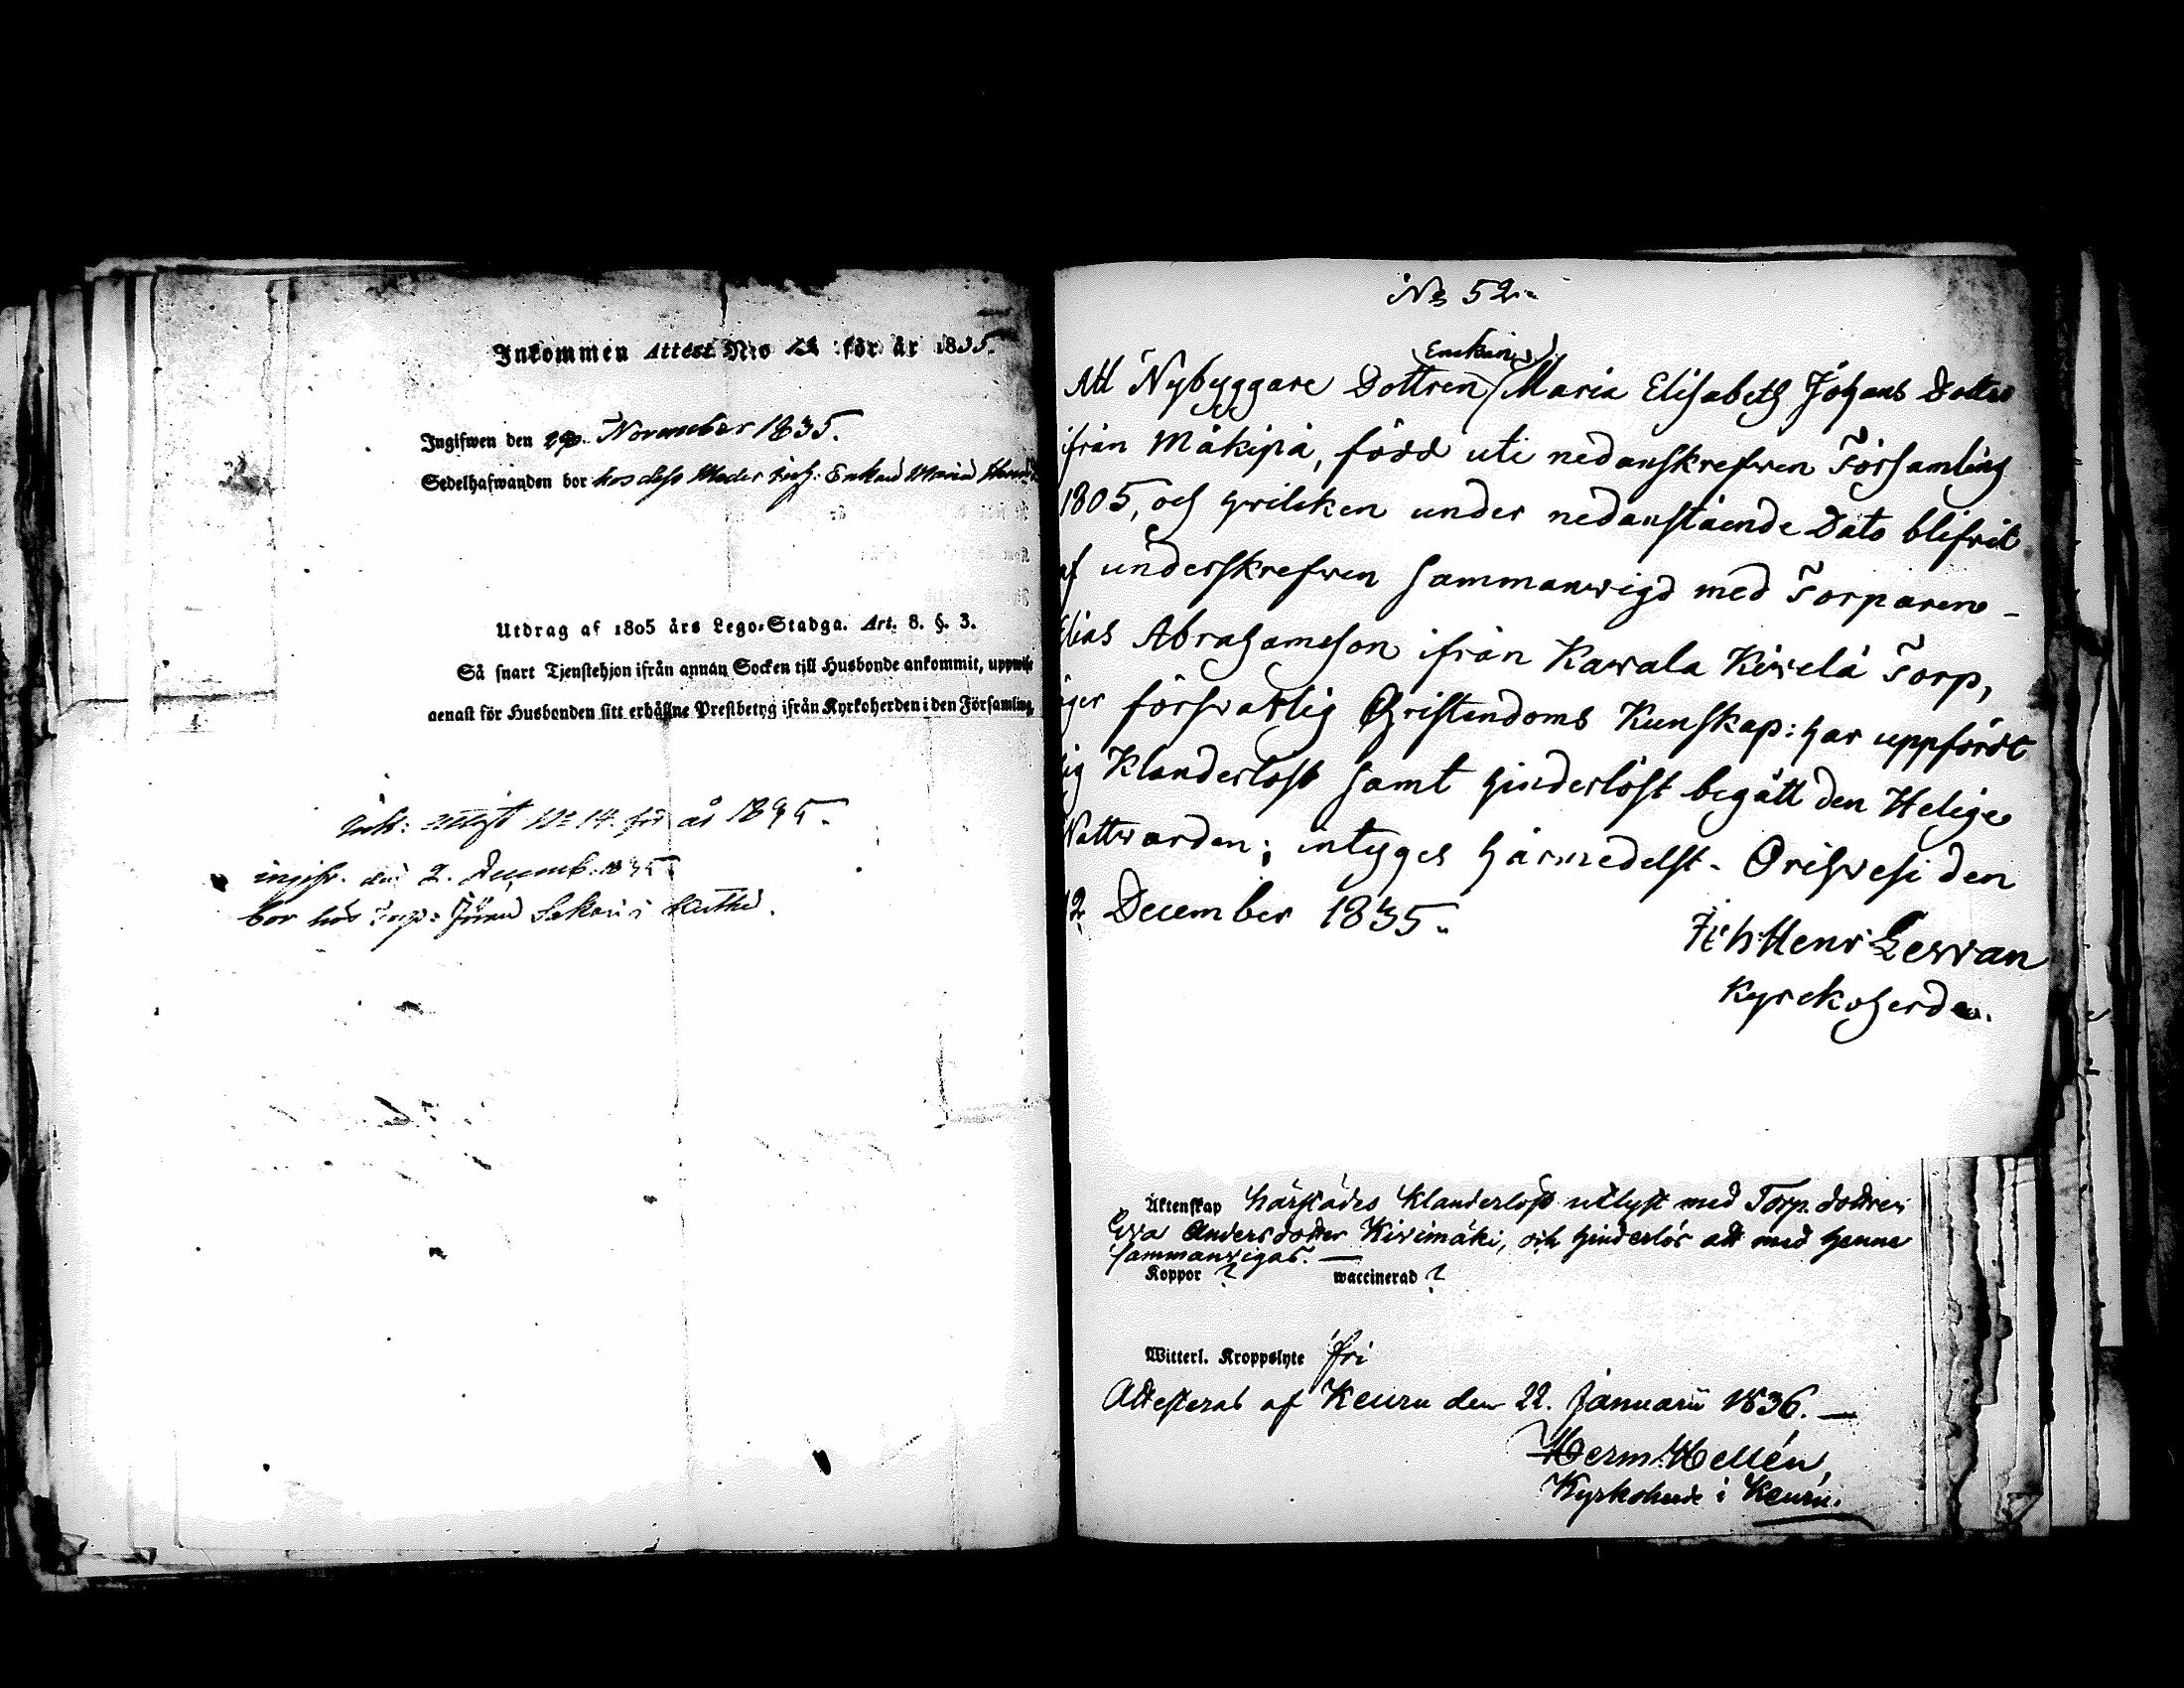 Inkommen Attest N:o för år 1835.
Ingifwen den November 1835.
Sedelhafwanden bor hos dess Moder Enkan Maria
Utdrag af 1805 års Lego-Stadga. Art. 8. §. 3.
Så snart Tjenstehjon ifrån annan Socken till Husbonde ankommit, uppwise
genast för Husbonden sitt erhållne Prestbetyg ifrån Kyrkoherden i den Församling,
N:o 14. för år 1835.
ingifv. den 2. Decemb. 1835
bor hos Torp:
No 52.
Enkan
Att Nybyggare Dottren Maria Elisabeth Johans Dotter
ifrån Mäkipä, född uti nedanskrefwen Församling
1805, och hvilcken under nedanstående Dato blifvit
af underskrefwen sammanwigd med Torparen
Elias Abrahamsson ifrån Kawala Kiwelä Torp,
äger förswarlig Christendoms Kunskap: har uppfördt
sig Klanderlöst samt hinderlöst begått den Helige
Nattwarden; intyges härmedelst. Orihvesi den
12 December 1835.
Joh Henr Lewan
Kyrckoherde.
Äktenskap härstädes klanderlöst utlyst med Torp. dottren
Eva Andersdotter Kivimäki, och hinderlös att med henne
sammanvigas. —
Koppor ? waccinerad ?
Witterl. Kroppslyte fri
Attesteras af Keuru den 22. Januarii 1836. —
Herm. Hellén,
Kyrkoherde i Keuru.